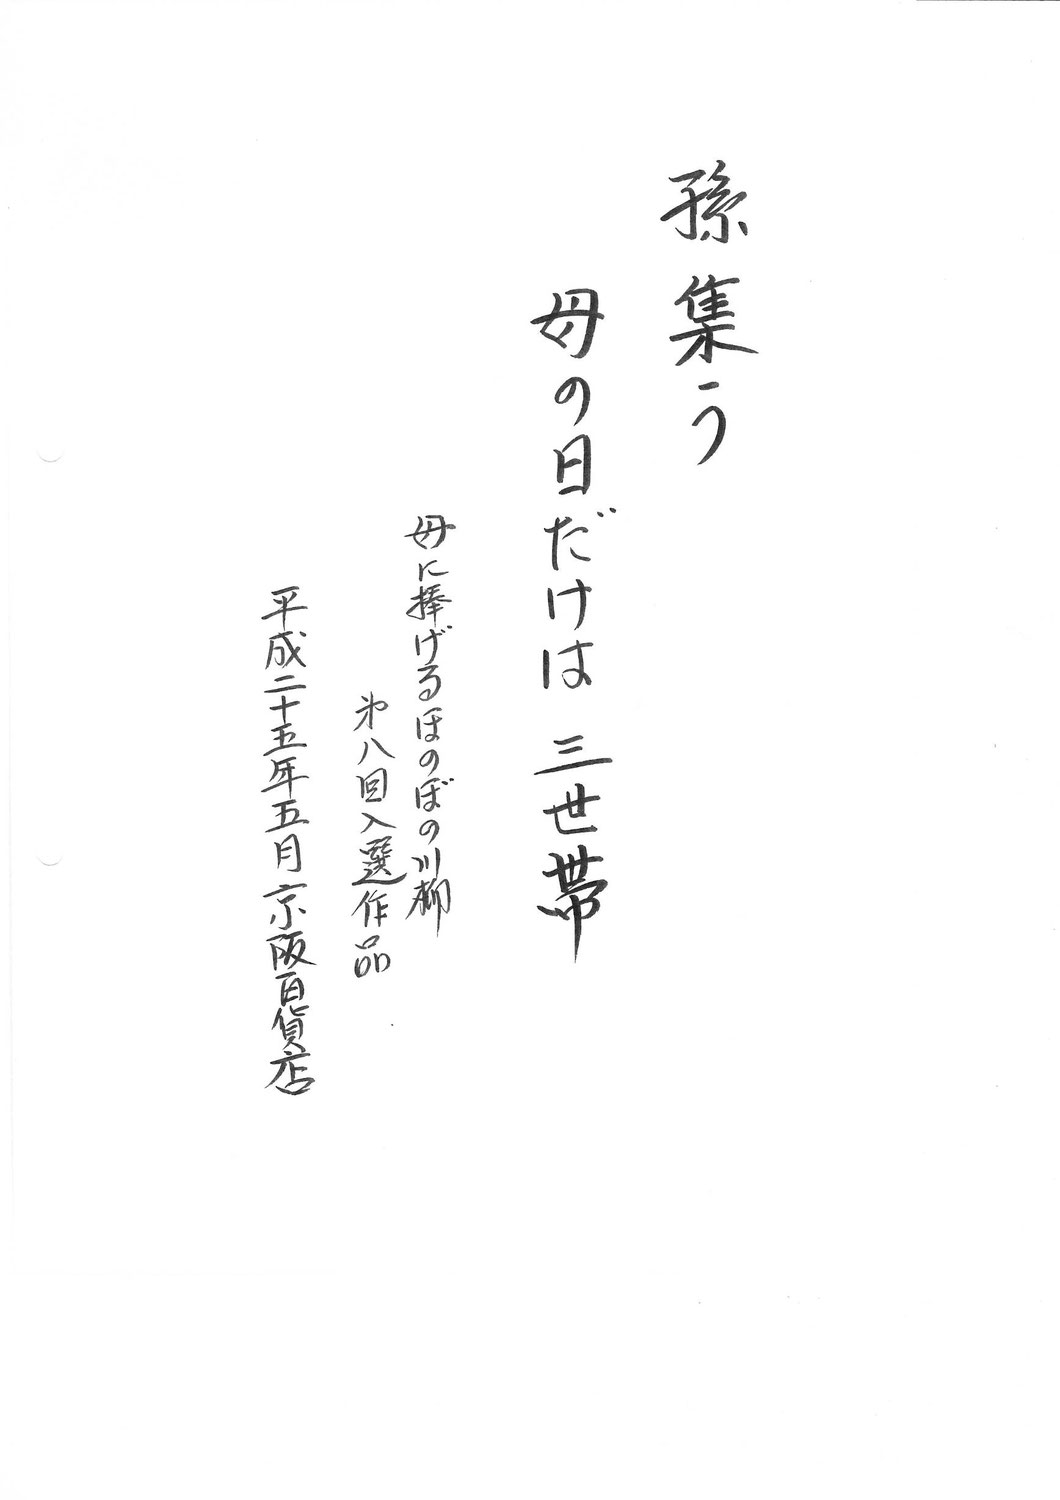 孫集う
母の日だけは 三世帯
母に捧げるほのぼの川柳
第八回入選作品
平成二十五年五月京阪百貨店